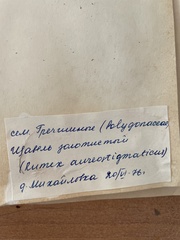 сем. Гречишные (Polygonaceae)
Щавель золотистый
(Rumex aureostigmaticus)
д. Михайловка 20/VI-76г.